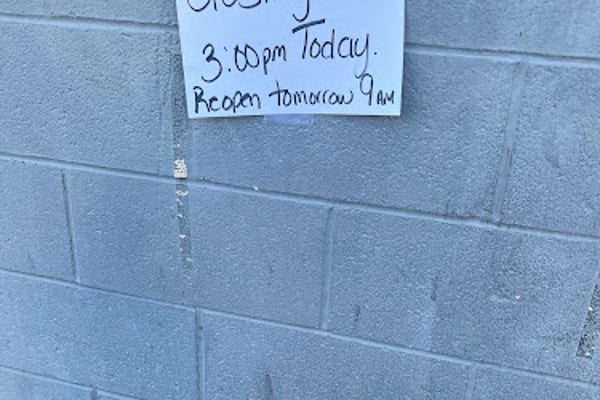 Closing
3:00pm Today.
Reopen tomorrow 9AM